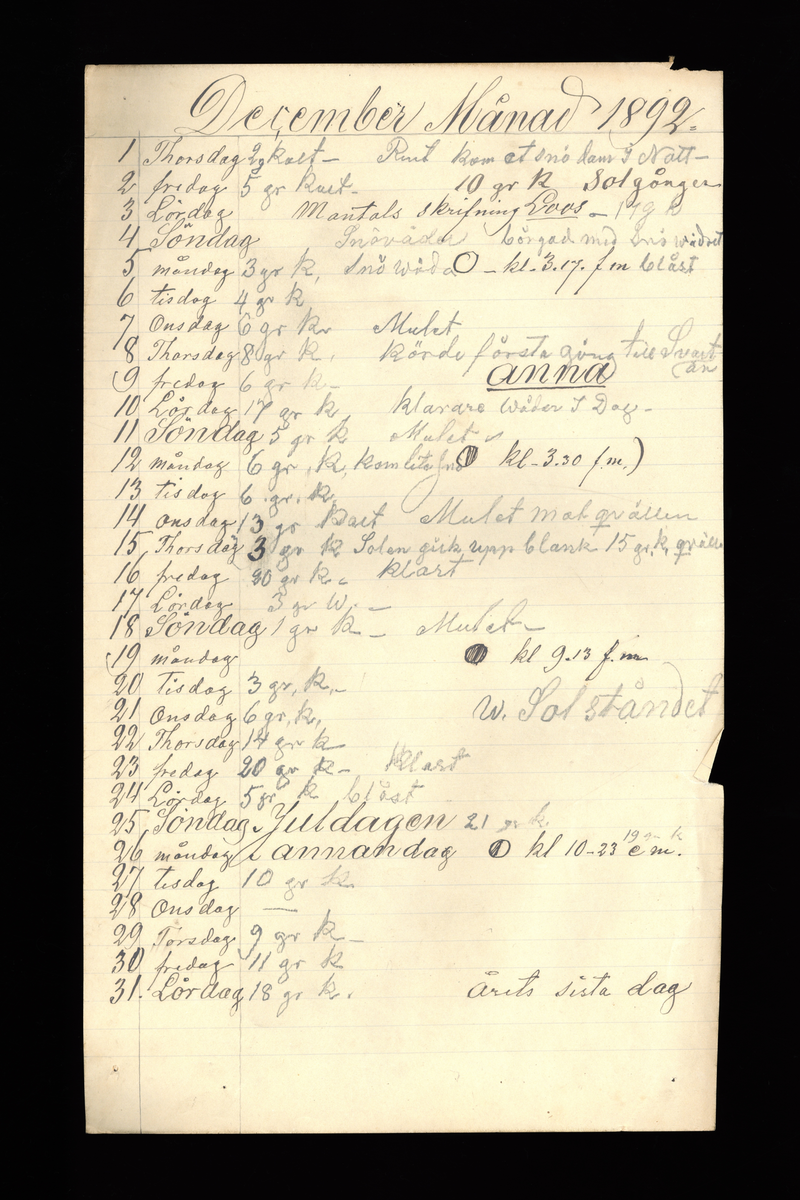 December Månad 1892.
1 Thorsdag 2 g kalt - kom et snö dam I Natt -
2 fredag 5 gr kalt - 10 gr k Solgången
3 Lördag Mantals skrifning Loos - 19 g k
4 Söndag Snöväder börjad med snö wädret
5 måndag 3 gr k, Snö wäda O - kl. 3.17. f m blåst
6 tisdag 4 gr k
7 Onsdag 6 gr k Mulet
8 Thorsdag 8 gr k. körde första gång till Svart-
ån
9 fredag 6 gr k - anna
10 Lördag 17 gr k klarare wäder I Dag -
11 Söndag 5 gr k Mulet
12 måndag 6 gr, k, kom lite snö kl - 3.30 f m.)
13 tisdag 6. gr. k.
14 onsdag 13 gr kalt Mulet mot qvällen
15, Thorsdag 3 gr k Solen gick upp blank 15 gr. k. qväll
16 fredag 20 gr k. klart
17 Lördag 3 gr W. -
18 Söndag 1 gr k - Mulet -
19 måndag kl 9.13 f. m
20 Tisdag 3 gr, k, -
21 Onsdag 6 gr, k, W. Solståndet
22 Thorsdag 14 gr k
23 fredag 20 gr k - klart
24 Lördag 5 gr k blåst
25, Söndag Juldagen 21 gr k.
26 måndag annandag kl 10-23 e m. 19 gr k
27 tisdag 10 gr k.
28 Onsdag —
29 Torsdag 9 gr k -
30 fredag 11 gr k
31. Lördag 18 gr k. årets sista dag